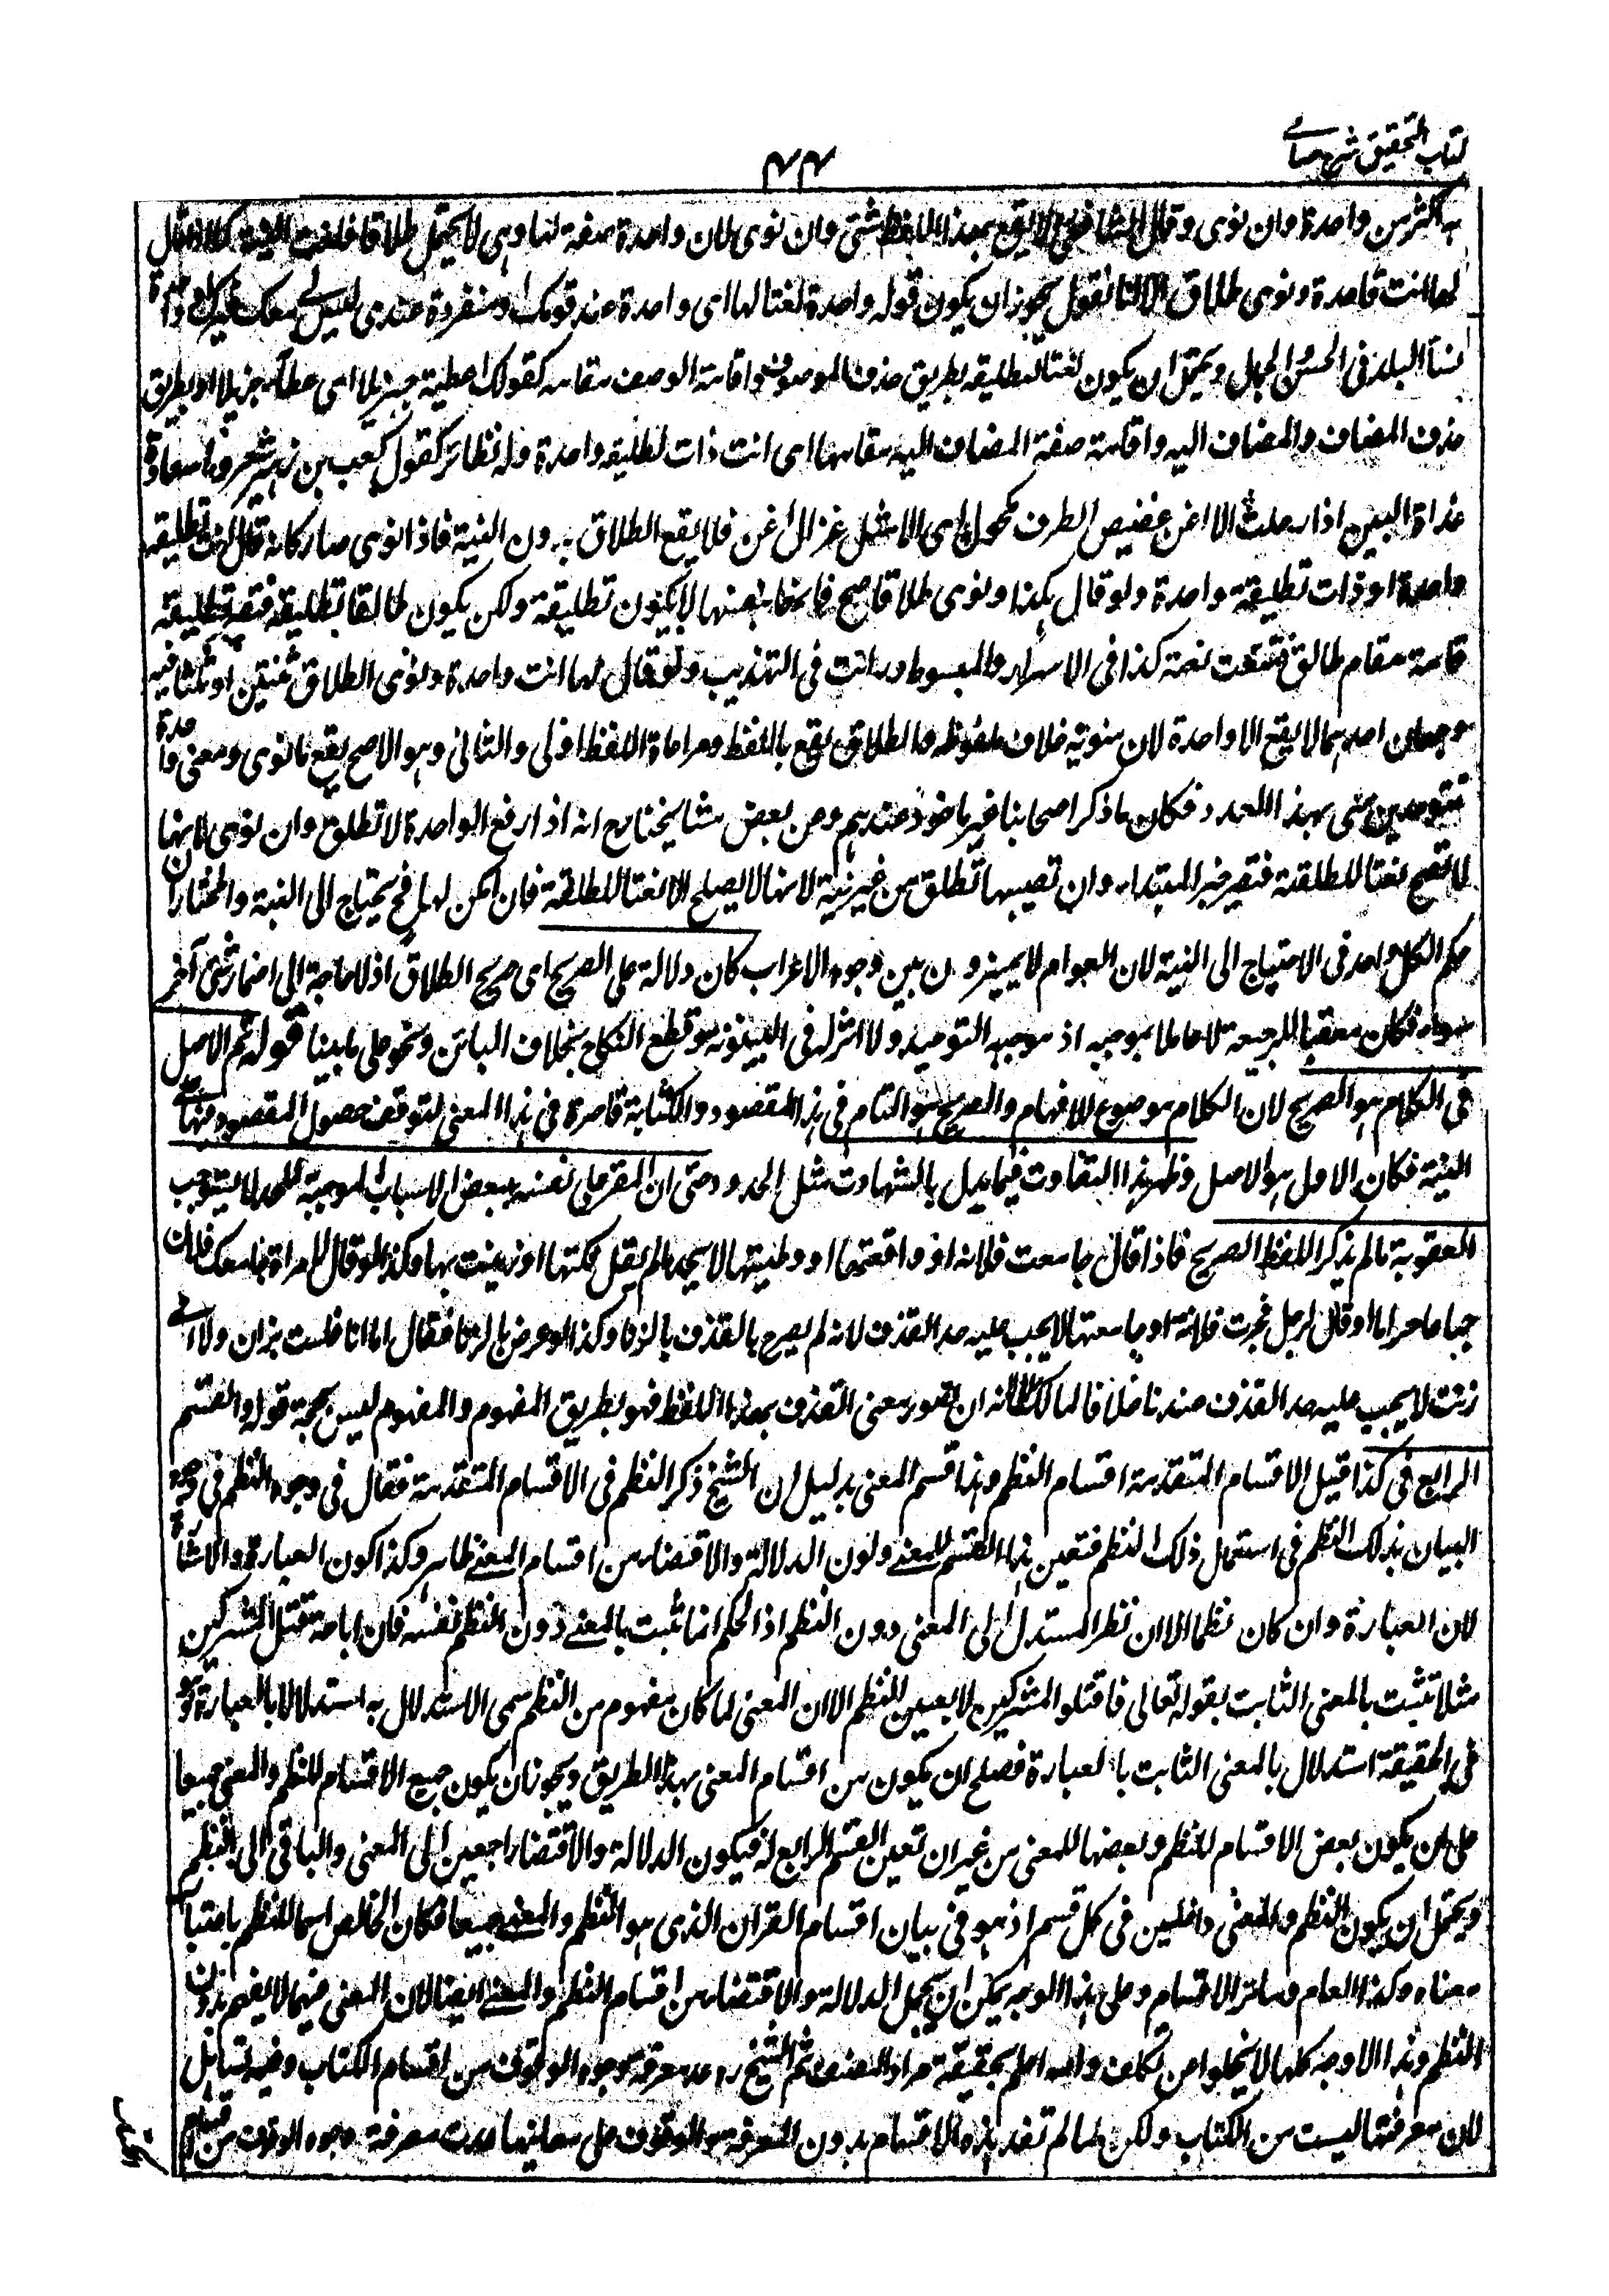 كتاب التحقيق شرح حسامے
۴۴
به اكثر من واحدة وان نوى وقال الشافعى لا يقع بهذا اللفظ شئ وان نوى لان واحدة صفة لها وهى لا يحتمل طلاقا فلغت النية كما اذا قال
لها انت قاعدة ونوى طلاق الا انا نقول يجوز ان يكون قوله واحدة نعتا لها اى واحدة عند قومك او منفردة عندى ليس لے معك غيرك او واحدة
نساء البلد فى الحسن والجمال ويحتمل ان يكون نعتا لتطليقه بطريق حذف الموصوف واقامة الوصف مقامه كقولك اعطيته جزيلا اى عطاء جزيلا او بطريق
حذف المضاف والمضاف اليه واقامة صفة المضاف اليه مقامها اى انت ذات تطليقه واحدة وله نظائر كقول كعب بن زهير شعر وما سعاد
غداة البين اذا رحلت الا اغن غضيض الطرف مكحول اى الا مثل غزال اغن فلا يقع الطلاق بدون النية فاذا نوى صار كانه قال انت تطليقه
واحدة او ذات تطليقة واحدة ولو قال هكذا ونوى طلاقا صح فانها بنفسها لا يكون تطليقة ولكن يكون طالقا بتطليقة فتقع تطليقة
قائمة مقام طالق فتقعت نعمة كذا فى الاسرار والمبسوط ورأيت فى التهذيب ولو قال لها انت واحدة ونوى الطلاق ثنتين او ثلثا فيه
وجهان احدهما لا يقع الا واحدة لان منويه خلاف ملفوظه والطلاق يقع باللفظ ومراعاة اللفظ اولى والثانى وهو الاصح يقع ما نوى ومعنى واحدة
تتوحدين منى بهذا العدد فكان ما ذكر اصحابنا غير ماخوذ عندهم وعن بعض مشايخنا رح انه اذا رفع الواحدة لا تطلق وان نوى لانها
لا تصح نعتا للطلقة فتصير خبر المبتداء وان نصبها تطلق من غير نية لانها لا يصلح الا نعتا للطلقة فان سكن لها فح يحتاج الى النية والمختار ان
حكم الكل واحد فى الاحتياج الى النية لان العوام لا يميزون بين وجوه الاعراب كان دلالة على الصريح اى صريح الطلاق اذ لا حاجة الى اضمار شئ آخر
سواه فكان معقبا للرجعة لا عاملا بموجبه اذ موجبه التوحيد ولا اثر له فى البينونة وقطع النكاح بخلاف البائن ونحوه على ما بينا قوله ثم الاصل
فى الكلام هو الصريح لان الكلام موضوع للافهام والصريح هو التام فى هذا المقصود والكناية قاصرة فى هذا المعنى لتوقف حصول المقصود منها على
النية فكان الاول هو الاصل وظهر هذا التفاوت فيما يدرأ بالشبهات مثل الحدود حتى ان المقر على نفسه ببعض الاسباب الموجبة للحد لا يستوجب
العقوبة ما لم يذكر اللفظ الصريح فاذا قال جامعت فلانه او واقعتها او وطيتها لا يحد ما لم يقل نكتها او زنيت بها وكذا لو قال لامراة جامعك فلان
جماعا حراما او قال لرجل فجرت فلانة او جامعتها لا يجب عليه حد القذف لانه لم يصرح بالقذف بالزنا وكذا لو عرض بالزنا فقال اما انا فلست بزان ولا امے
زنت لا يجب عليه حد القذف عندنا خلافا لمالك لانه ان تصور معنى القذف بهذا اللفظ فهو بطريق المفهوم والمفهوم ليس بحجة قوله والقسم
الرابع فى كذا قيل الاقسام المتقدمة اقسام النظم وهذا قسم المعنى بدليل ان الشيخ ذكر النظم فى الاقسام المتقدمة فقال فى وجوه النظم فى وجوه
البيان بذلك النظم فى استعمال ذلك النظم فتعين هذا القسم للمعنے ولون الدلالة والاقتضاء من اقسام المعنے ظاهر وكذا كون العبارة والاشارة
لان العبارة وان كان نظما الا ان نظر المستدل الى المعنى دون النظم اذ الحكم انما ثبت بالمعنے دون النظم نفسه فان اباحة قتل المشركين
مثلا تثبت بالمعنى الثابت بقوله تعالى فاقتلوا المشركين لا بعين النظم الا ان المعنى لما كان مفهوم من النظم سمى الاستدلال به استدلالا بالعبارة وهو
فى الحقيقة استدلال بالمعنى الثابت بالعبارة فصلح ان يكون من اقسام المعنى بهذا الطريق ويجوز ان يكون جميع الاقسام للنظم والمعنى جميعا
على ان يكون بعض الاقسام للنظم وبعضها للمعنى من غير ان تعين القسم الرابع له فيكون الدلالة والاقتضاء راجعين الى المعنى والباقى الى النظم
ويحتمل ان يكون النظم والمعنى داخلين فى كل قسم اذ هو فى بيان اقسام القران الذى هو النظم والمعنے جميعا فكان الخاص اسما للنظم باعتبار
معناه وكذا العام وسائر الاقسام وعلى هذا الوجه يمكن ان يجعل الدلالة والاقتضاء من اقسام النظم والمعنے ايضا لان المعنى فيهما لا يفهم بدون
النظم وهذا الاوجه كلها لا يخلوا من تكلف والله اعلم بحقيقة مراد المصنف ثم الشيخ ره عد معرفة وجوه الوقوف من اقسام الكتاب وفيه تساهل
لان معرفتها ليست من الكتاب ولكن لما لم تفد هذه الاقسام بدون المعرفة والوقوف على معانيها عدت معرفة وجوه الوقوف من اقسام